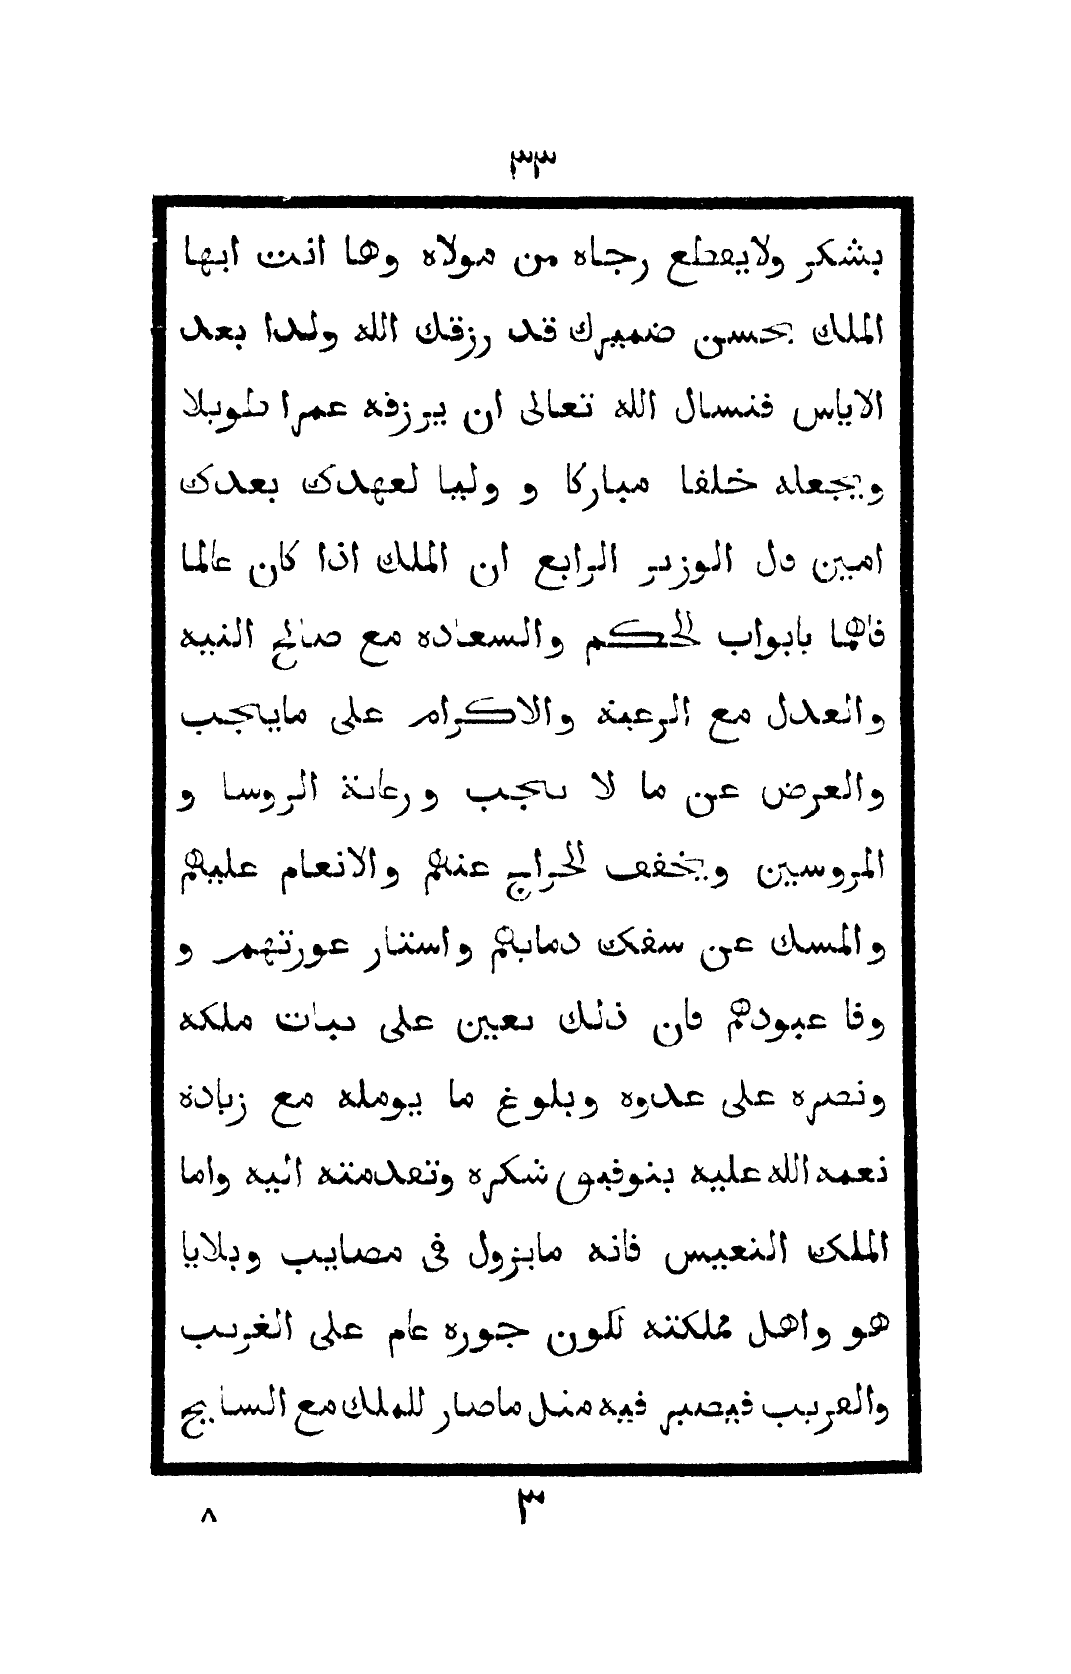 ٣٣
بشكر ولايقطع رجاه من مولاه وها انت ايها
الملك بحسن ضميرك قد رزقك الله ولدا بعد
الاياس فنسال الله تعالى ان يرزقه عمرا طويلا
ويجعله خلفا مباركا و وليا لعهدك بعدك
امين قال الوزير الرابع ان الملك اذا كان عالما
فاهما بابواب الحكم والسعاده مع صالح النيه
والعدل مع الرعية والاكرام على مايجب
والعرض عن ما لا يجب ورعاية الروسا و
المروسين ويخفف الخراج عنهم والانعام عليهم
والمسك عن سفك دمايهم واستتار عورتهم و
وفا عبودهم فان ذلك يعين على ثبات ملكه
ونصره على عدوه وبلوغ ما يومله مع زيادة
نعمه الله عليه بتوفيق شكره وتقدمته اليه واما
الملك التعيس فانه مايزول فى مصايب وبلايا
هو واهل مملكته لكون جوره عام على الغريب
والقريب فيصير فيه مثل ماصار للملك مع السايح
٣
٨